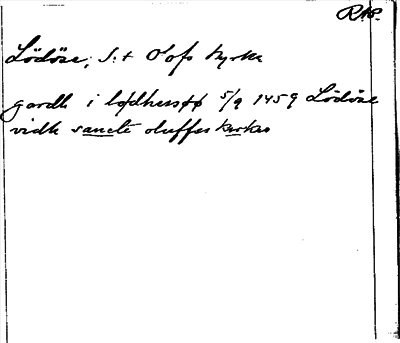 RAP.
Lödöse, S:t Olofs kyrka
gardh i lødhersøø 5/9 1459 Lödöse
vidh sancte oluffss kirkio